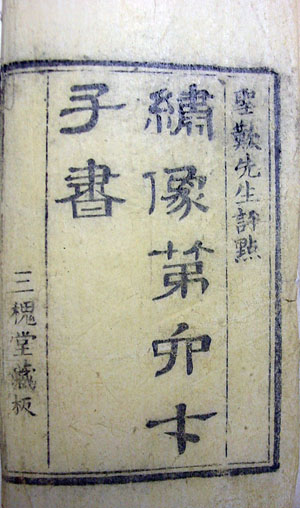 聖歎先生評點
繡像苐卯才
子書
三槐堂藏板